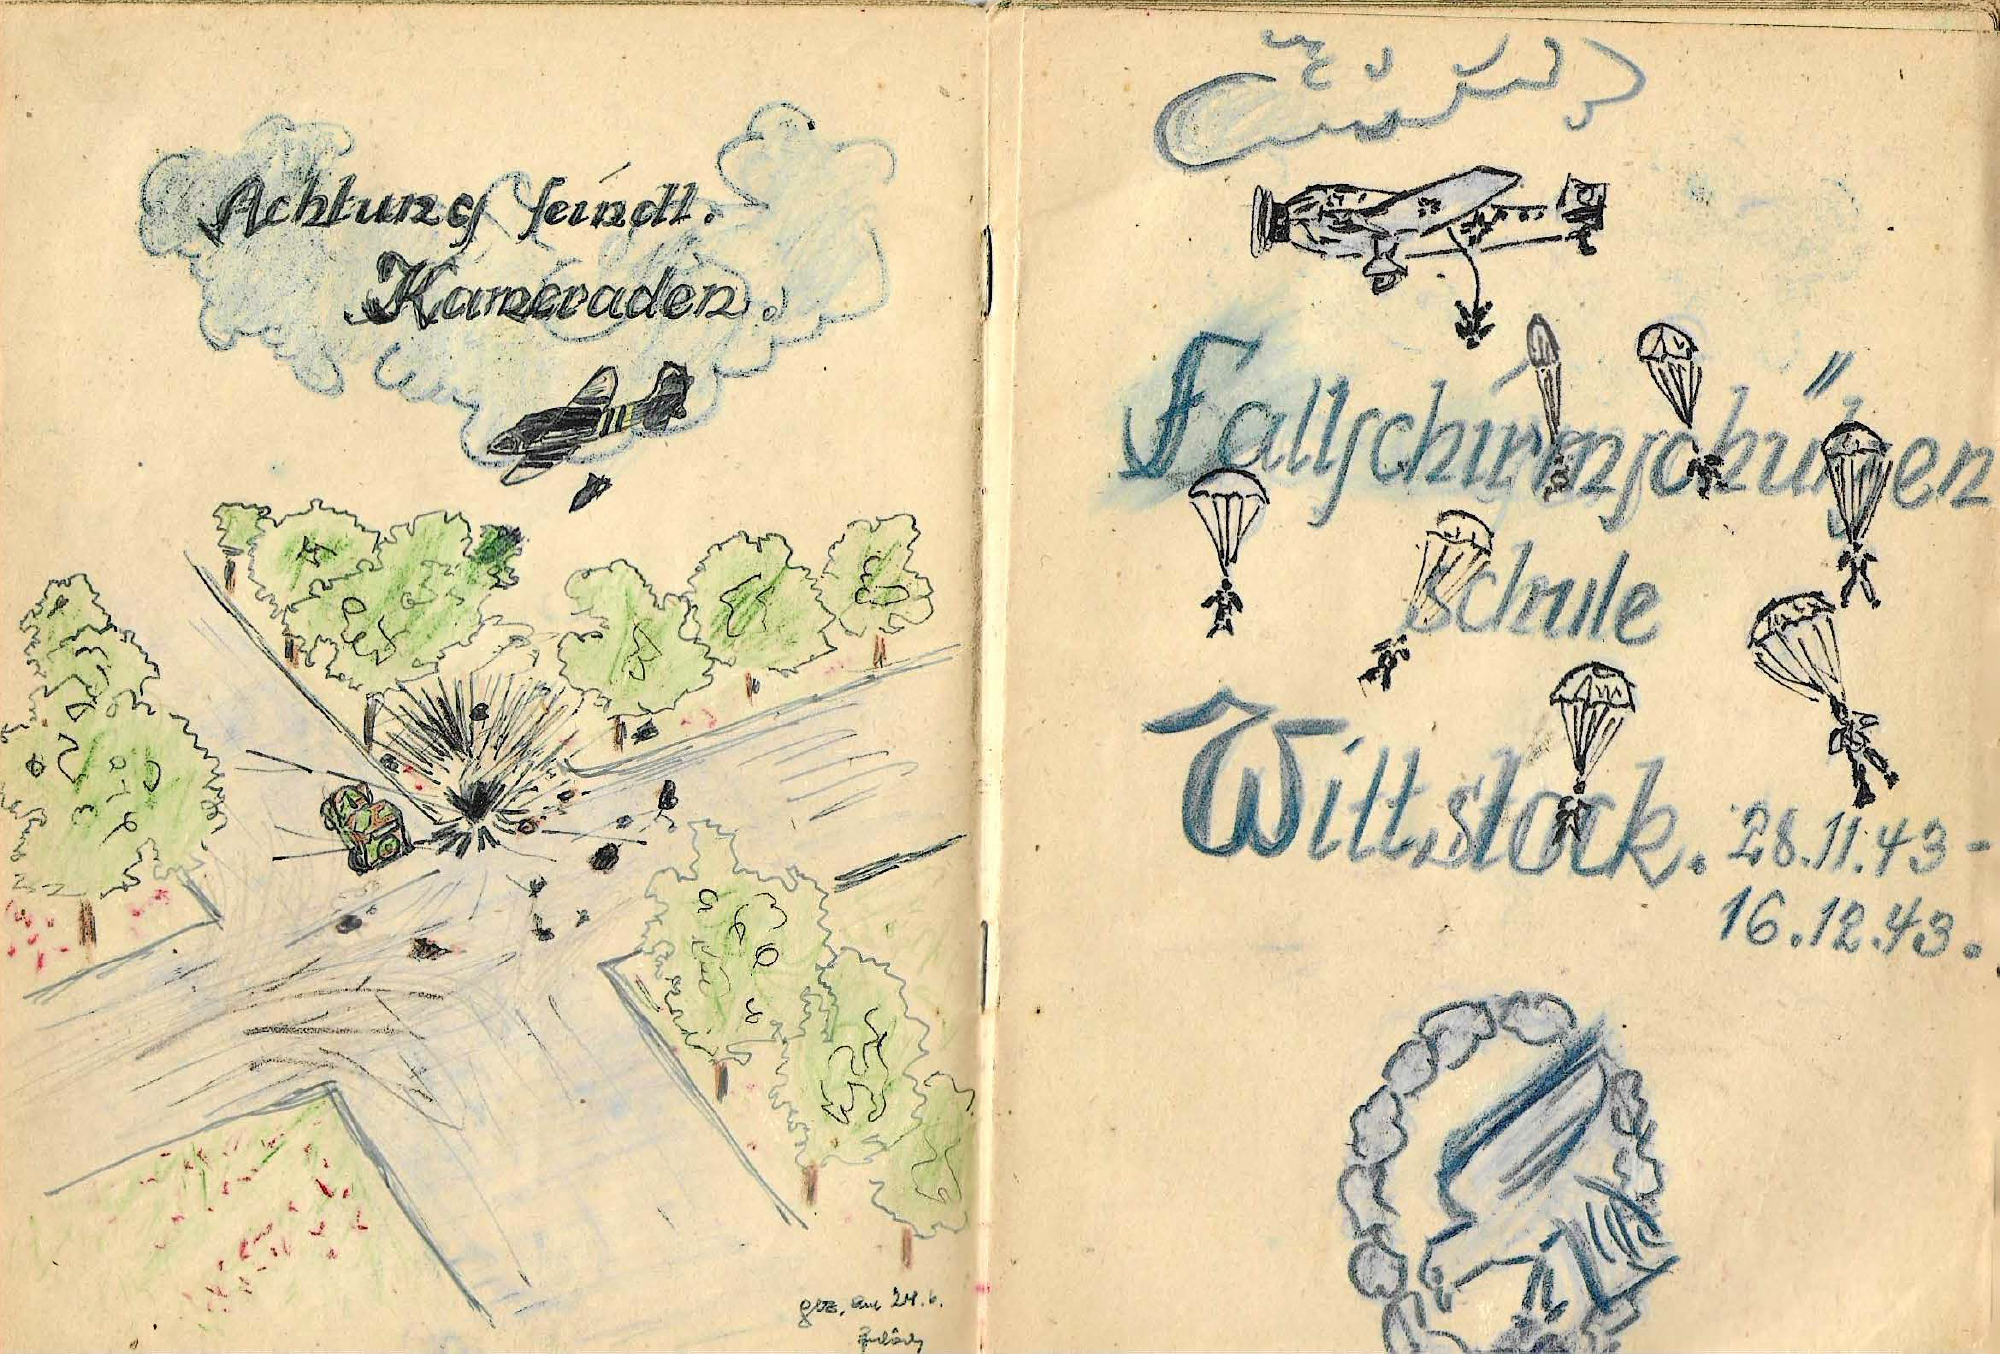 Achtung feindl.
Kameraden.
gez. am 24.6.
Fallschirmschützen
schule
Wittstock. 28.11.43 -
16.12.43.